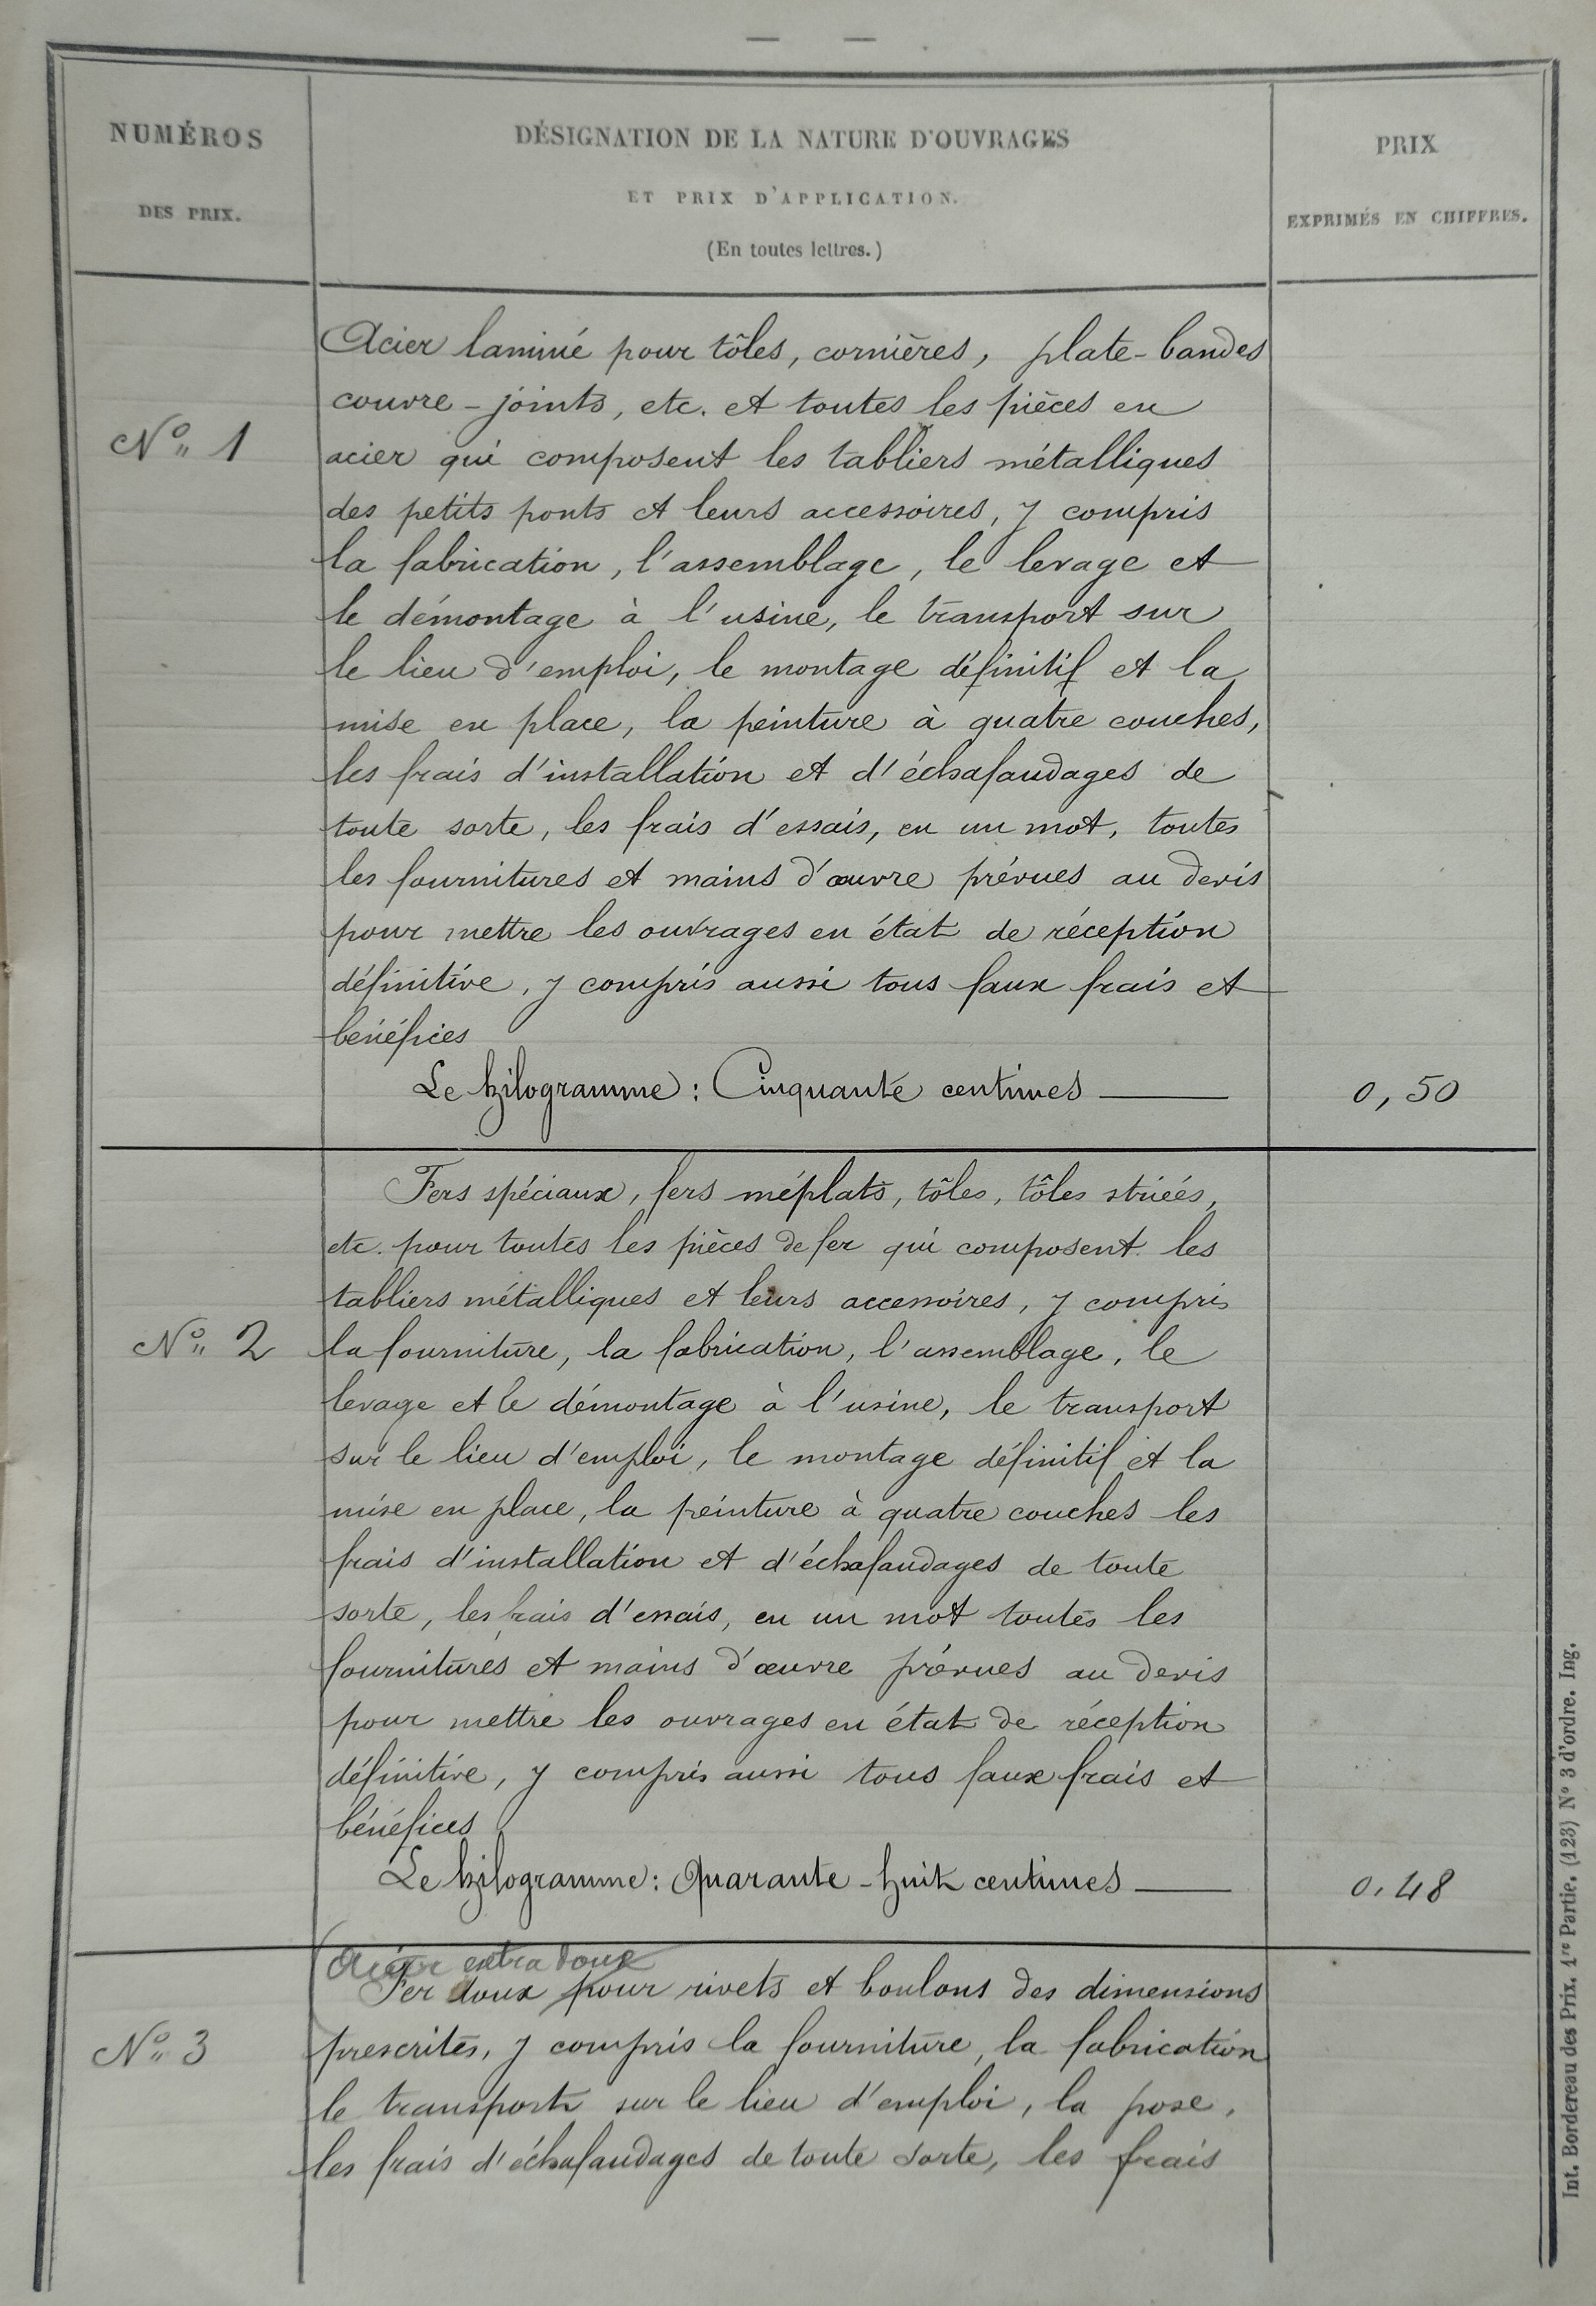 NUMÉROS
DES PRIX.
DÉSIGNATION DE LA NATURE D'OUVRAGES
ET PRIX D'APPLICATION.
(En toutes lettres.)
PRIX
EXPRIMÉS EN CHIFFRES.
N° 1
Acier laminé pour tôles, cornières, plate-bandes
couvre-joints, etc. et toutes les pièces en
acier qui composent les tabliers métalliques
des petits ponts et leurs accessoires, y compris
la fabrication, l'assemblage, le levage et
le démontage à l'usine, le transport sur
le lieu d'emploi, le montage définitif et la
mise en place, la peinture à quatre couches,
les frais d'installation et d'échafaudages de
toute sorte, les frais d'essais, en un mot, toutes
les fournitures et mains d'œuvre prévues au devis
pour mettre les ouvrages en état de réception
définitive, y compris aussi tous faux frais et
bénéfices
Le kilogramme : Cinquante centimes
0,50
N° 2
Fers spéciaux, fers méplats, tôles, tôles striées,
etc. pour toutes les pièces de fer qui composent les
tabliers métalliques et leurs accessoires, y compris
la fourniture, la fabrication, l'assemblage, le
levage et le démontage à l'usine, le transport
sur le lieu d'emploi, le montage définitif et la
mise en place, la peinture à quatre couches les
frais d'installation et d'échafaudages de toute
sorte, les frais d'essais, en un mot toutes les
fournitures et mains d'œuvre prévues au devis
pour mettre les ouvrages en état de réception
définitive, y compris aussi tous faux frais et
bénéfices
Le kilogramme : Quarante-huit centimes
0,48
N° 3
Acier extra doux
Fer doux pour rivets et boulons des dimensions
prescrites, y compris la fourniture, la fabrication
le transport sur le lieu d'emploi, la pose,
les frais d'échafaudages de toute sorte, les frais
Int. Bordereau des Prix. 1re Partie. (123) N° 3 d'ordre. Ing.